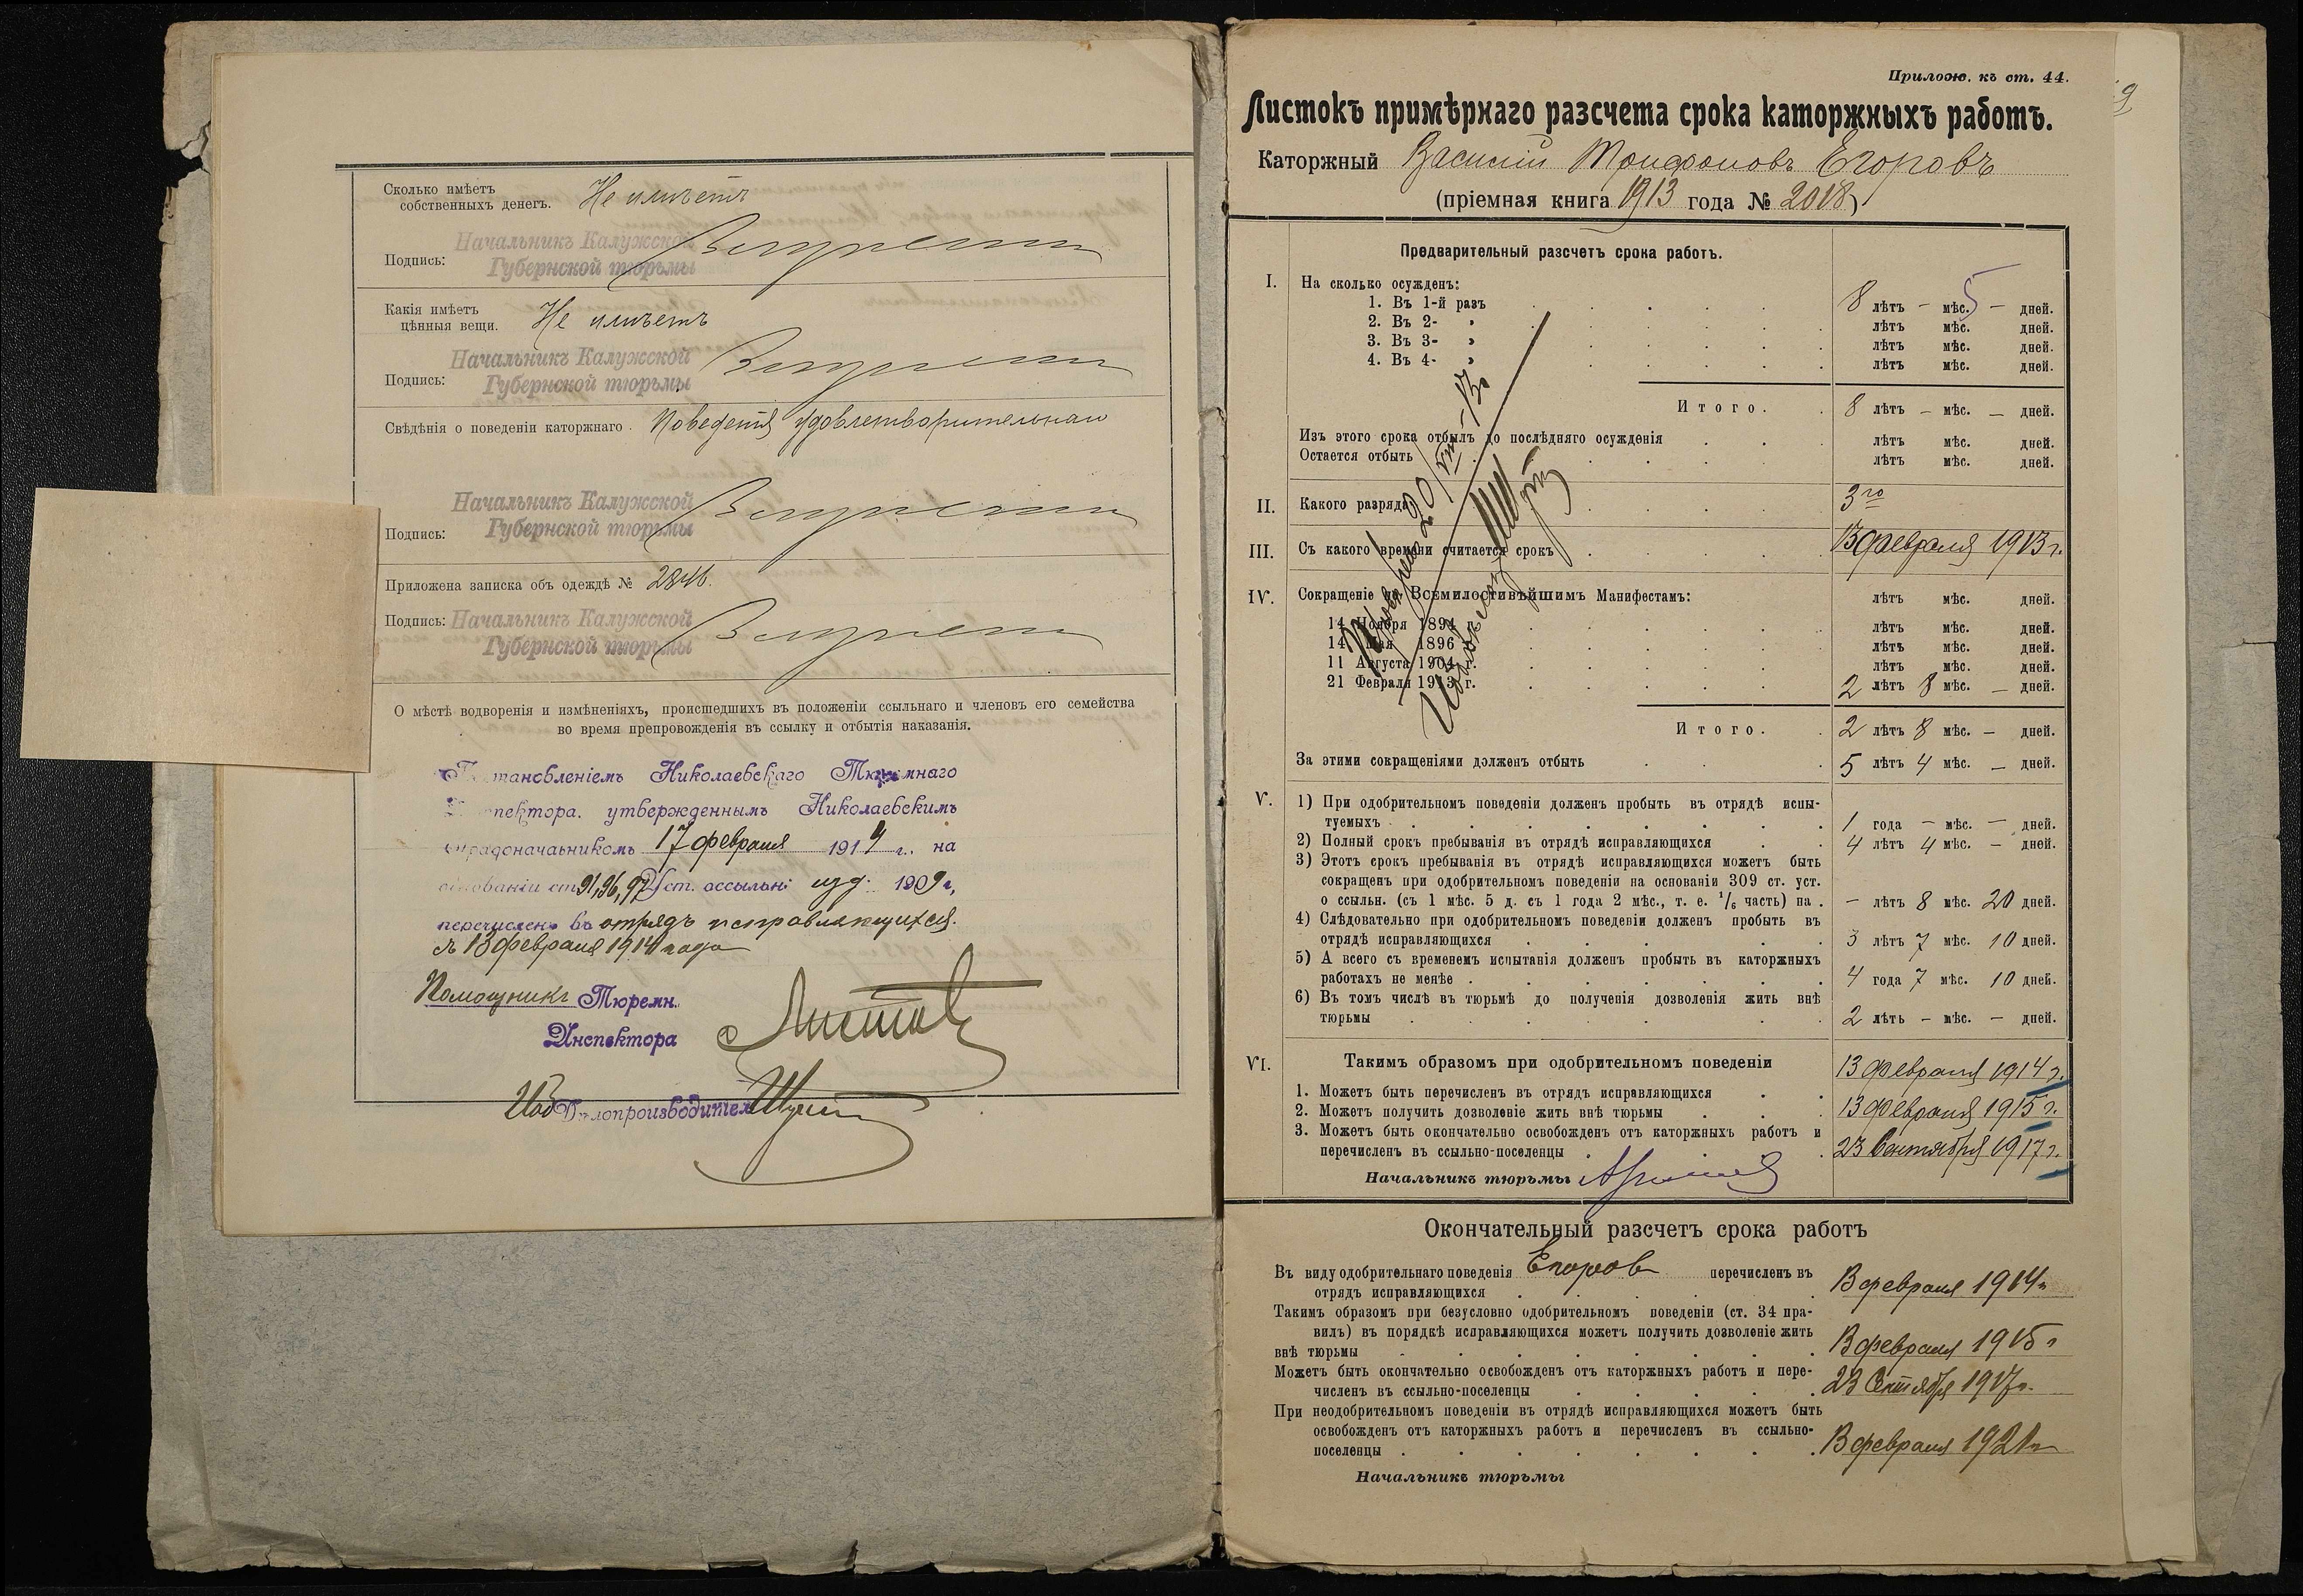 Сколько имѣетъ
собственныхъ денегъ. Не имѣетъ
Начальникъ Калужской
Подпись: Губернской тюрьмы
Какія имѣетъ
цѣнныя вещи. Не имѣетъ
Начальникъ Калужской
Подпись: Губернской тюрьмы
Свѣдѣнія о поведеніи каторжнаго. Поведенія удовлетворительнаго
Начальникъ Калужской
Подпись: Губернской тюрьмы
Приложена записка объ одеждѣ № 2846.
Подпись: Начальникъ Калужской
Губернской тюрьмы
О мѣстѣ водворенія и измѣненіяхъ, происшедшихъ въ положеніи ссыльнаго и членовъ его семейства
во время препровожденія въ ссылку и отбытія наказанія.
Постановленіемъ Николаевскаго Тюремнаго
Инспектора, утвержденнымъ Николаевскимъ
Градоначальникомъ 17 февраля 1914 г., на
основаніи ст. 91, 96, 97 Уст. о ссыльн: изд. 1909 г,
перечисленъ въ отрядъ исправляющихся
съ 13 февраля 1914 года
Помощникъ Тюремн.
Инспектора
Дѣлопроизводитель
9
Прилож. къ ст. 44.
Листокъ примѣрнаго разсчета срока каторжныхъ работъ.
Каторжный Василій Трифоновъ Егоровъ
(пріемная книга 1913 года № 2018)
Предварительный разсчетъ срока работъ.
I. На сколько осужденъ:
1. Въ 1-й разъ 8 лѣтъ – мѣс. 5 – дней.
2. Въ 2- » лѣтъ мѣс. дней.
3. Въ 3- » лѣтъ мѣс. дней.
4. Въ 4- » лѣтъ мѣс. дней.
Итого. 8 лѣтъ – мѣс. – дней.
Изъ этого срока отбылъ до послѣдняго осужденія лѣтъ мѣс. дней.
Остается отбыть лѣтъ мѣс. дней.
II. Какого разряда 3го
III. Съ какого времени считается срокъ 13 февраля 1913 г.
IV. Сокращеніе по Всемилостивѣйшимъ Манифестамъ: лѣтъ мѣс. дней.
14 Ноября 1894 г. лѣтъ мѣс. дней.
14 Мая 1896 лѣтъ мѣс. дней.
11 Августа 1904 г. лѣтъ мѣс. дней.
21 Февраля 1913 г. 2 лѣтъ 8 мѣс. – дней.
Итого. 2 лѣтъ 8 мѣс. – дней.
За этими сокращеніями долженъ отбыть 5 лѣтъ 4 мѣс. – дней.
V. 1) При одобрительномъ поведеніи долженъ пробыть въ отрядѣ испы-
туемыхъ 1 года – мѣс. – дней.
2) Полный срокъ пребыванія въ отрядѣ исправляющихся 4 лѣтъ 4 мѣс. – дней.
3) Этотъ срокъ пребыванія въ отрядѣ исправляющихся можетъ быть
сокращенъ при одобрительномъ поведеніи на основаніи 309 ст. уст.
о ссыльн. (съ 1 мѣс. 5 д. съ 1 года 2 мѣс., т. е. 1/6 часть) на. – лѣтъ 8 мѣс. 20 дней.
4) Слѣдовательно при одобрительномъ поведеніи долженъ пробыть въ
отрядѣ исправляющихся 3 лѣтъ 7 мѣс. 10 дней.
5) А всего съ временемъ испытанія долженъ пробыть въ каторжныхъ
работахъ не менѣе 4 года 7 мѣс. 10 дней.
6) Въ томъ числѣ въ тюрьмѣ до полученія дозволенія жить внѣ
тюрьмы 2 лѣтъ – мѣс. – дней.
VI. Такимъ образомъ при одобрительномъ поведеніи
1. Можетъ быть перечисленъ въ отрядъ исправляющихся 13 февраля 1914 г.
2. Можетъ получить дозволеніе жить внѣ тюрьмы 13 февраля 1915 г.
3. Можетъ быть окончательно освобожденъ отъ каторжныхъ работъ и
перечисленъ въ ссыльно-поселенцы 23 Сентября 1917 г.
Начальникъ тюрьмы
Окончательный разсчетъ срока работъ
Въ виду одобрительнаго поведенія Егоровъ перечисленъ въ
отрядъ исправляющихся 13 февраля 1914 г
Такимъ образомъ при безусловно одобрительномъ поведеніи (ст. 34 пра-
вилъ) въ порядкѣ исправляющихся можетъ получить дозволеніе жить
внѣ тюрьмы 13 февраля 1915 г
Можетъ быть окончательно освобожденъ отъ каторжныхъ работъ и пере-
численъ въ ссыльно-поселенцы 23 Сентября 1917 г.
При неодобрительномъ поведеніи въ отрядѣ исправляющихся можетъ быть
освобожденъ отъ каторжныхъ работъ и перечисленъ въ ссыльно-
поселенцы 13 февраля 1921 г
Начальникъ тюрьмы